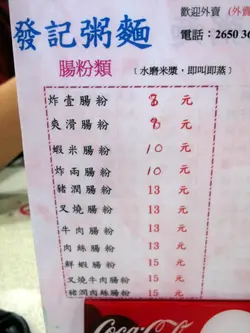 歡迎外賣 (外賣
發記粥麵
電話：2650 36
腸粉類 〔水磨米漿，即叫即蒸〕
炸壹腸粉 8 元
爽滑腸粉 8 元
蝦米腸粉 10 元
炸兩腸粉 10 元
豬潤腸粉 13 元
叉燒腸粉 13 元
牛肉腸粉 13 元
肉絲腸粉 13 元
鮮蝦腸粉 15 元
叉燒牛肉腸粉 15 元
豬潤肉絲腸粉 15 元
Coca-Co